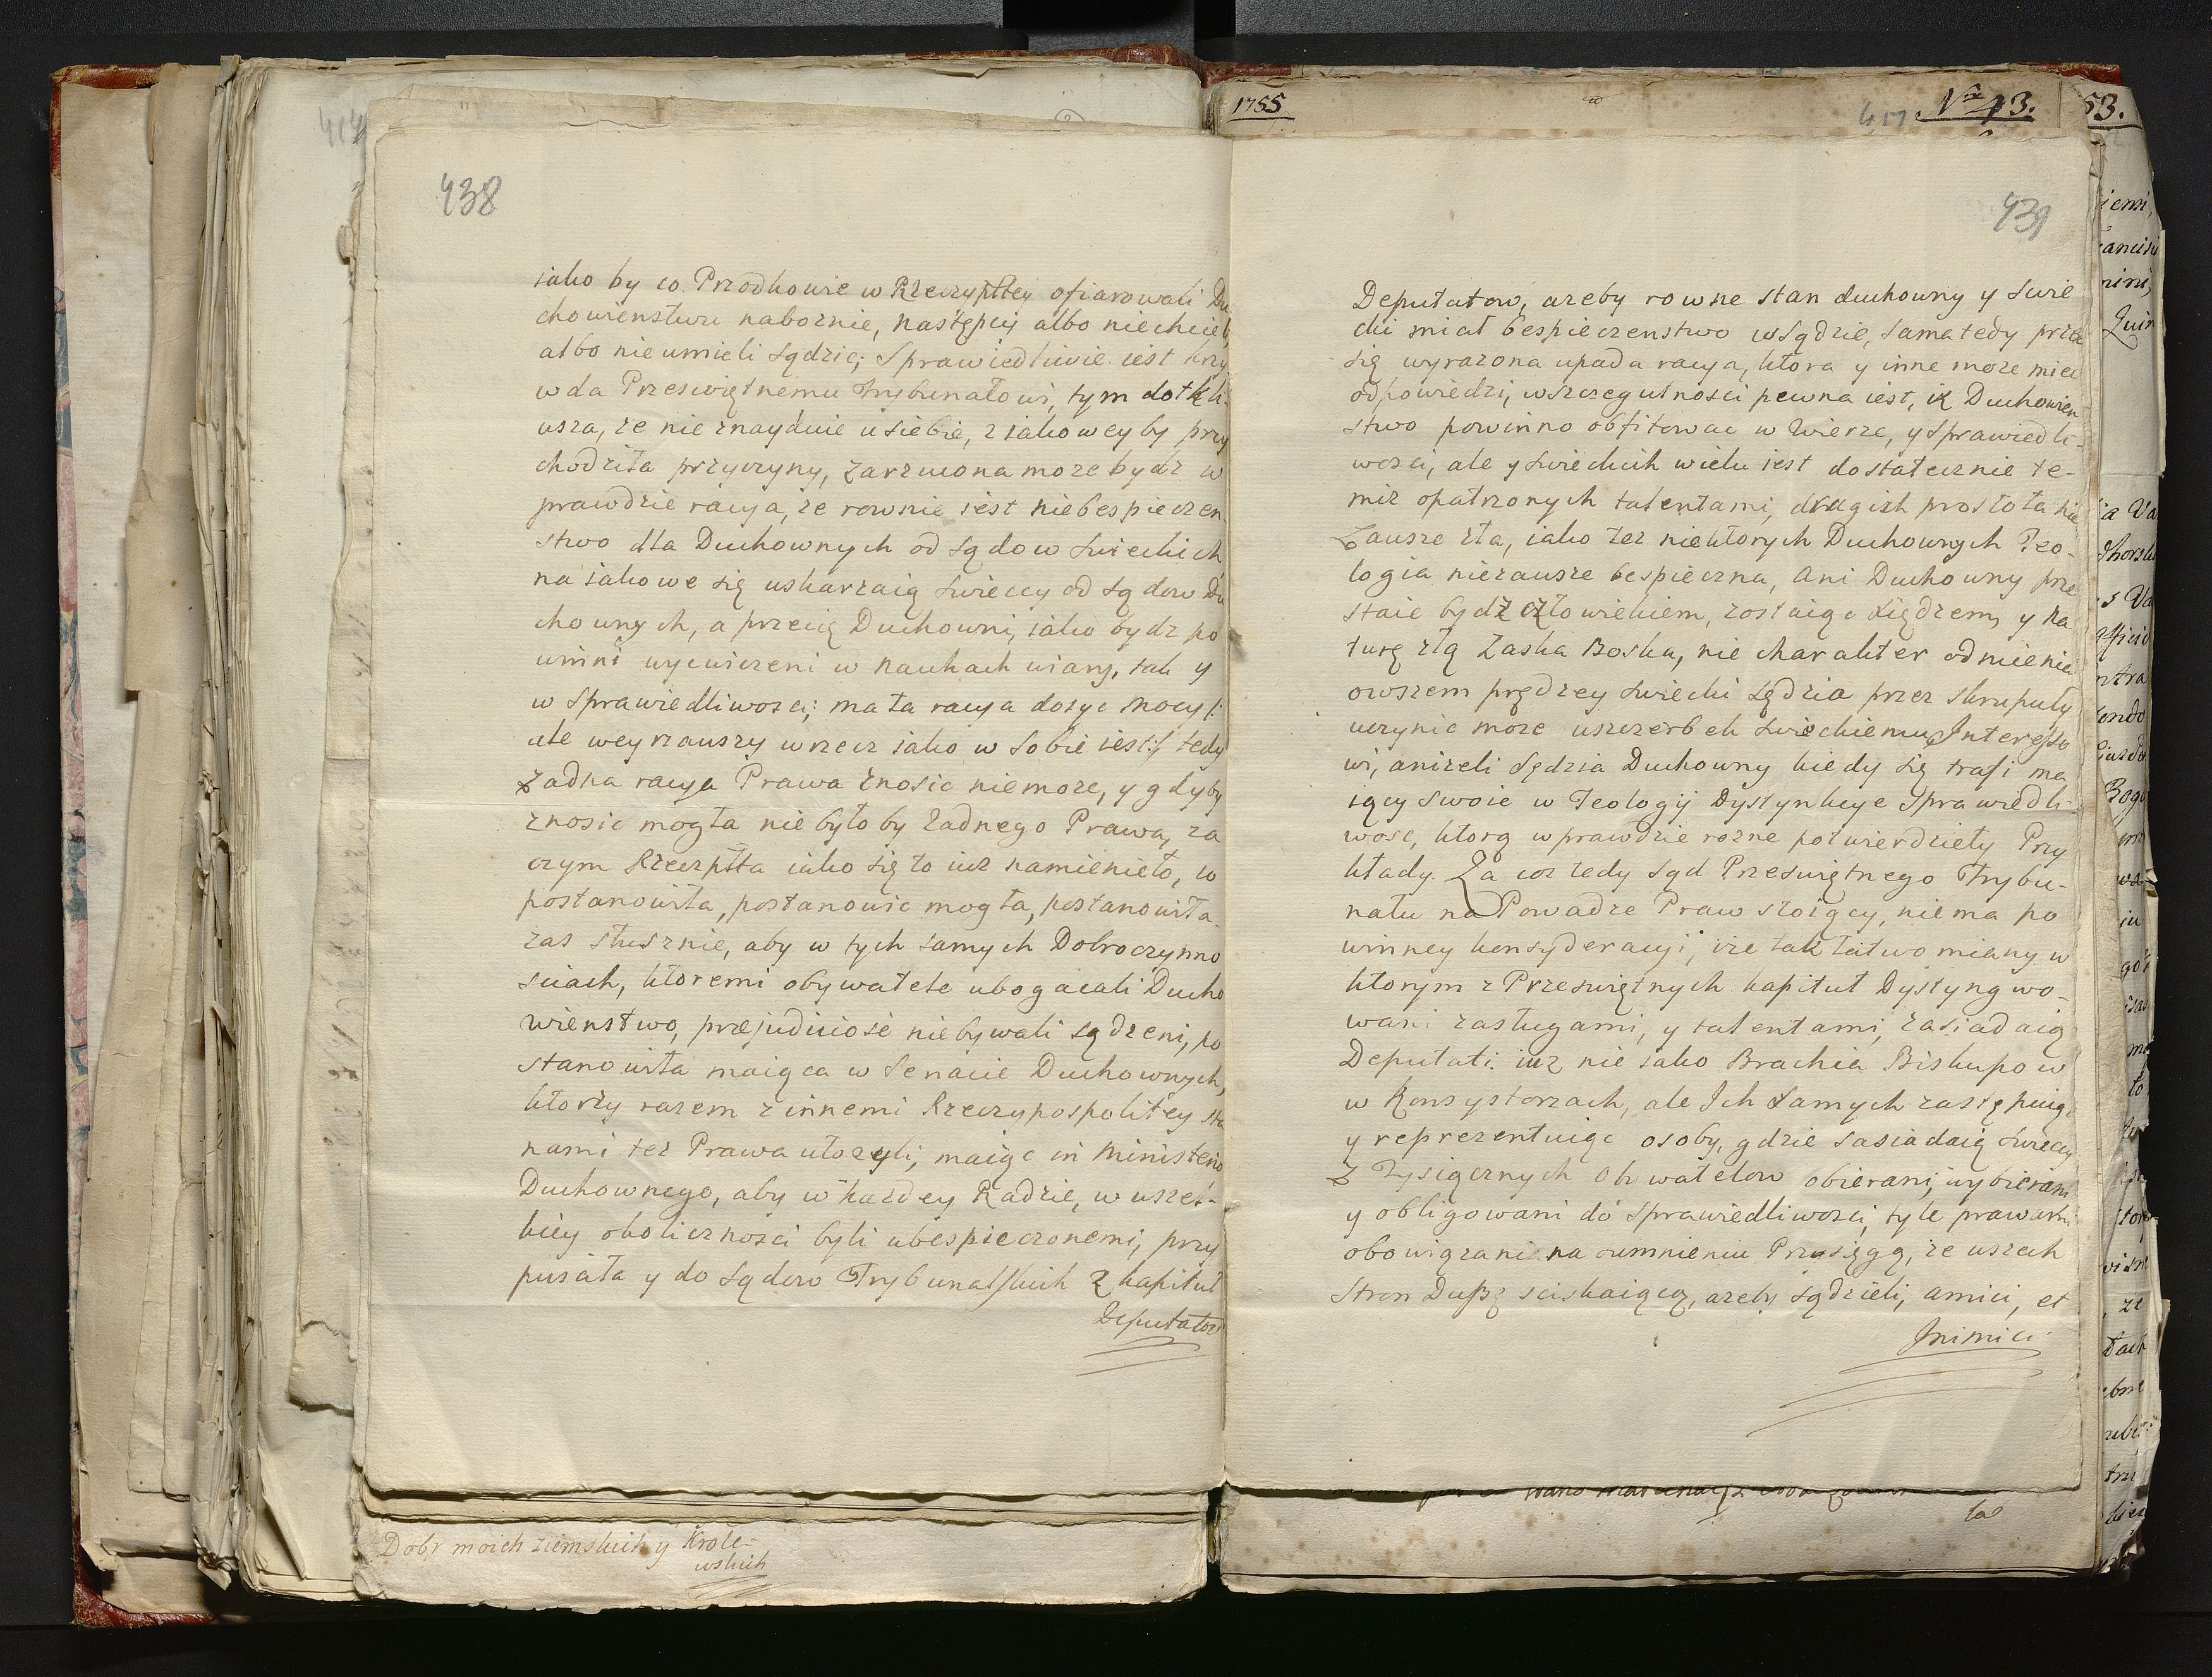 438
iako by co Przodkowie w Rzeczypltey ofiarowali Du
chowienstwu naboznie, następcy albo niechcieli,
albo nieumieli sądzic; Sprawiedliwie iest krzy
wda Przeswiętnemu Trybunałowi, tym dotkli-
wsza, ze nie znayduie u siebie, z iakowey by przy
chodziła przyczyny, zarzucona moze bydz w
prawdzie racya, ze rownie iest niebespieczen
stwo dla Duchownych od sądow swieckich
na iakowe się uskarzaią swieccy od sądow Du
chownych, a przecię Duchowni, iako bydz po
winni wycwiczeni w naukach wiary, tak y
w sprawiedliwosci; ma ta racya dosyc mocy /:
ale weyrzawszy w rzecz iako w sobie iest :/ tedy
zadna racya Prawa znosic niemoze, y gdyby
znosic mogła nie byłoby zadnego Prawa, za
czym Rzeczptta iako się to iuz namieniło, co
postanowiła, postanowic mogła, postanowiła
zas słusznie, aby w tych samych Dobroczynno
sciach, ktoremi obywatele ubogacali Ducho
wienstwo, præjudiciose niebywali sądzeni, po
stanowiła maiąca w Senacie Duchownych,
ktorzy razem z innemi Rzeczypospolitey sta
nami tez Prawa ułozyli, maiąc in Ministerio
Duchownego, aby w kazdey Radzie, w wszel-
kiey okolicznosci byli ubespieczonemi, przy
pusciła y do sądow Trybunalskich z kapituł
Deputatow
Dobr moich ziemskich y Krole-
wskich
1755
417. Nro 13.
53.
439
Deputatow, azeby rowne stan duchowny y swie
cki miał bespieczenstwo w Sądzie, sama tedy przez
się wyrazona upada racya, ktora y inne moze miec
odpowiedzi, w szczegulnosci pewna iest, iz Duchowien
stwo powinno obfitowac w Wierze, y Sprawiedli-
wosci, ale y swieckich wielu iest dostatecznie te-
miz opatrzonych talentami, drugich prostota nie
zawsze zła, iako tez niektorych Duchownych Teo-
logia niezawsze bespieczna, Ani Duchowny prze
staie bydz człowiekiem, zostaiąc xiędzem, y na
turę złą Łaska Boska, nie charakter odmienia
owszem prędzey swiecki sędzia przez skrupuły
uczynic moze uszczerbek swieckiemu Interesso
wi, anizeli Sędzia Duchowny kiedy się trafi ma
iący swoie w Teologij Dystynkcye Sprawiedli-
wosc, ktorą w prawdzie rozne potwierdziły Przy
kłady. Za coz tedy sąd Przeswiętnego Trybu-
nału na Powadze Praw stoiący, niema po
winney konsyderacyi, ize tak łatwo miany w
ktorym z Przeswiętnych kapituł Dystyngwo-
wani zasługami, y talentami, zasiadaią
Deputati: iuz nie iako Brachia Biskupow
w Konsystorzach, ale Ich samych zastępuią
y reprezentuiąc osoby, gdzie zasiadaią swieccy
z Tysiącznych Obywatelow obierani, wybierani
y obligowani do sprawiedliwosci, tyle prawami
obowiązani na sumnieniu Przysięgą, ze wszech
Stron Duszę sciskaiącą, azeby sądzieli, amici, et
Inimici
ta